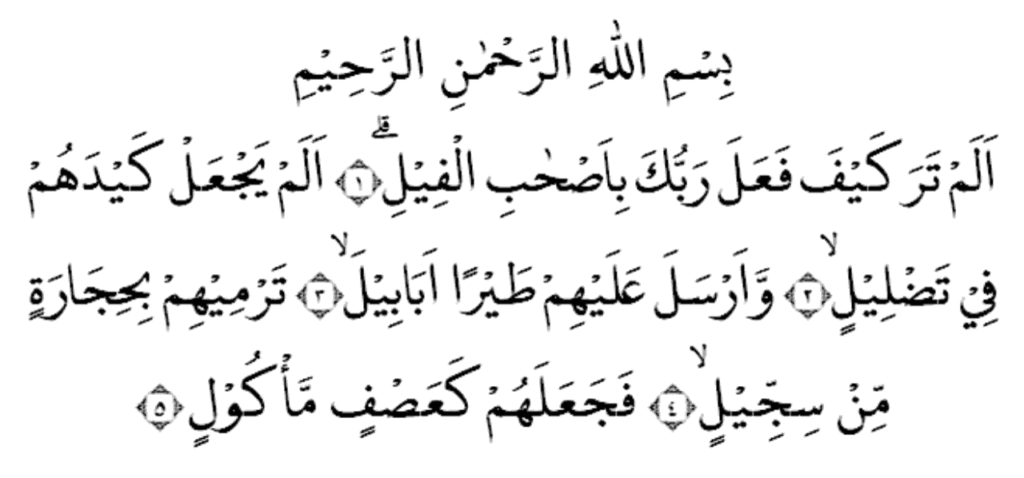 بِسْمِ اللّٰهِ الرَّحْمٰنِ الرَّحِيْمِ
اَلَمْ تَرَ كَيْفَ فَعَلَ رَبُّكَ بِاَصْحٰبِ الْفِيْلِۗ ١ اَلَمْ يَجْعَلْ كَيْدَهُمْ
فِيْ تَضْلِيْلٍۙ ٢ وَّاَرْسَلَ عَلَيْهِمْ طَيْرًا اَبَابِيْلَۙ ٣ تَرْمِيْهِمْ بِحِجَارَةٍ
مِّنْ سِجِّيْلٍۙ ٤ فَجَعَلَهُمْ كَعَصْفٍ مَّأْكُوْلٍ ٥